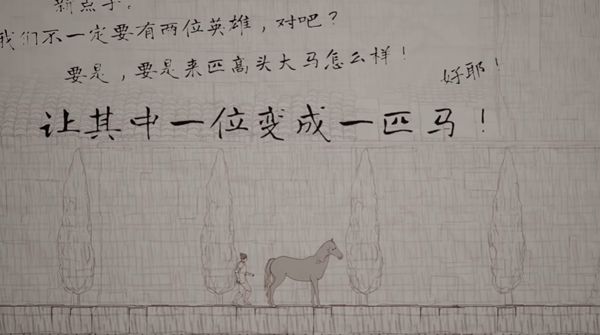 新点子。
我们不一定要有两位英雄，对吧？
要是，要是来匹高头大马怎么样！
好耶！
让其中一位变成一匹马！